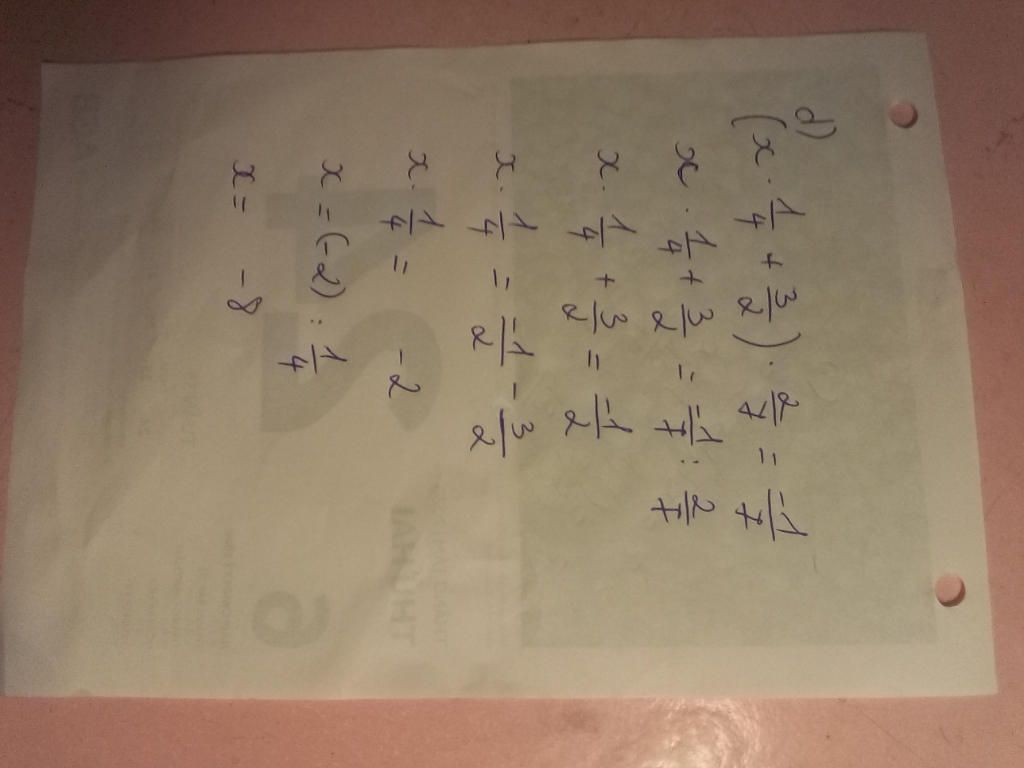 d)
(x · 1/4 + 3/2) · 2/7 = -1/7
x · 1/4 + 3/2 = -1/7 : 2/7
x · 1/4 + 3/2 = -1/2
x · 1/4 = -1/2 - 3/2
x · 1/4 = -2
x = (-2) : 1/4
x = -8